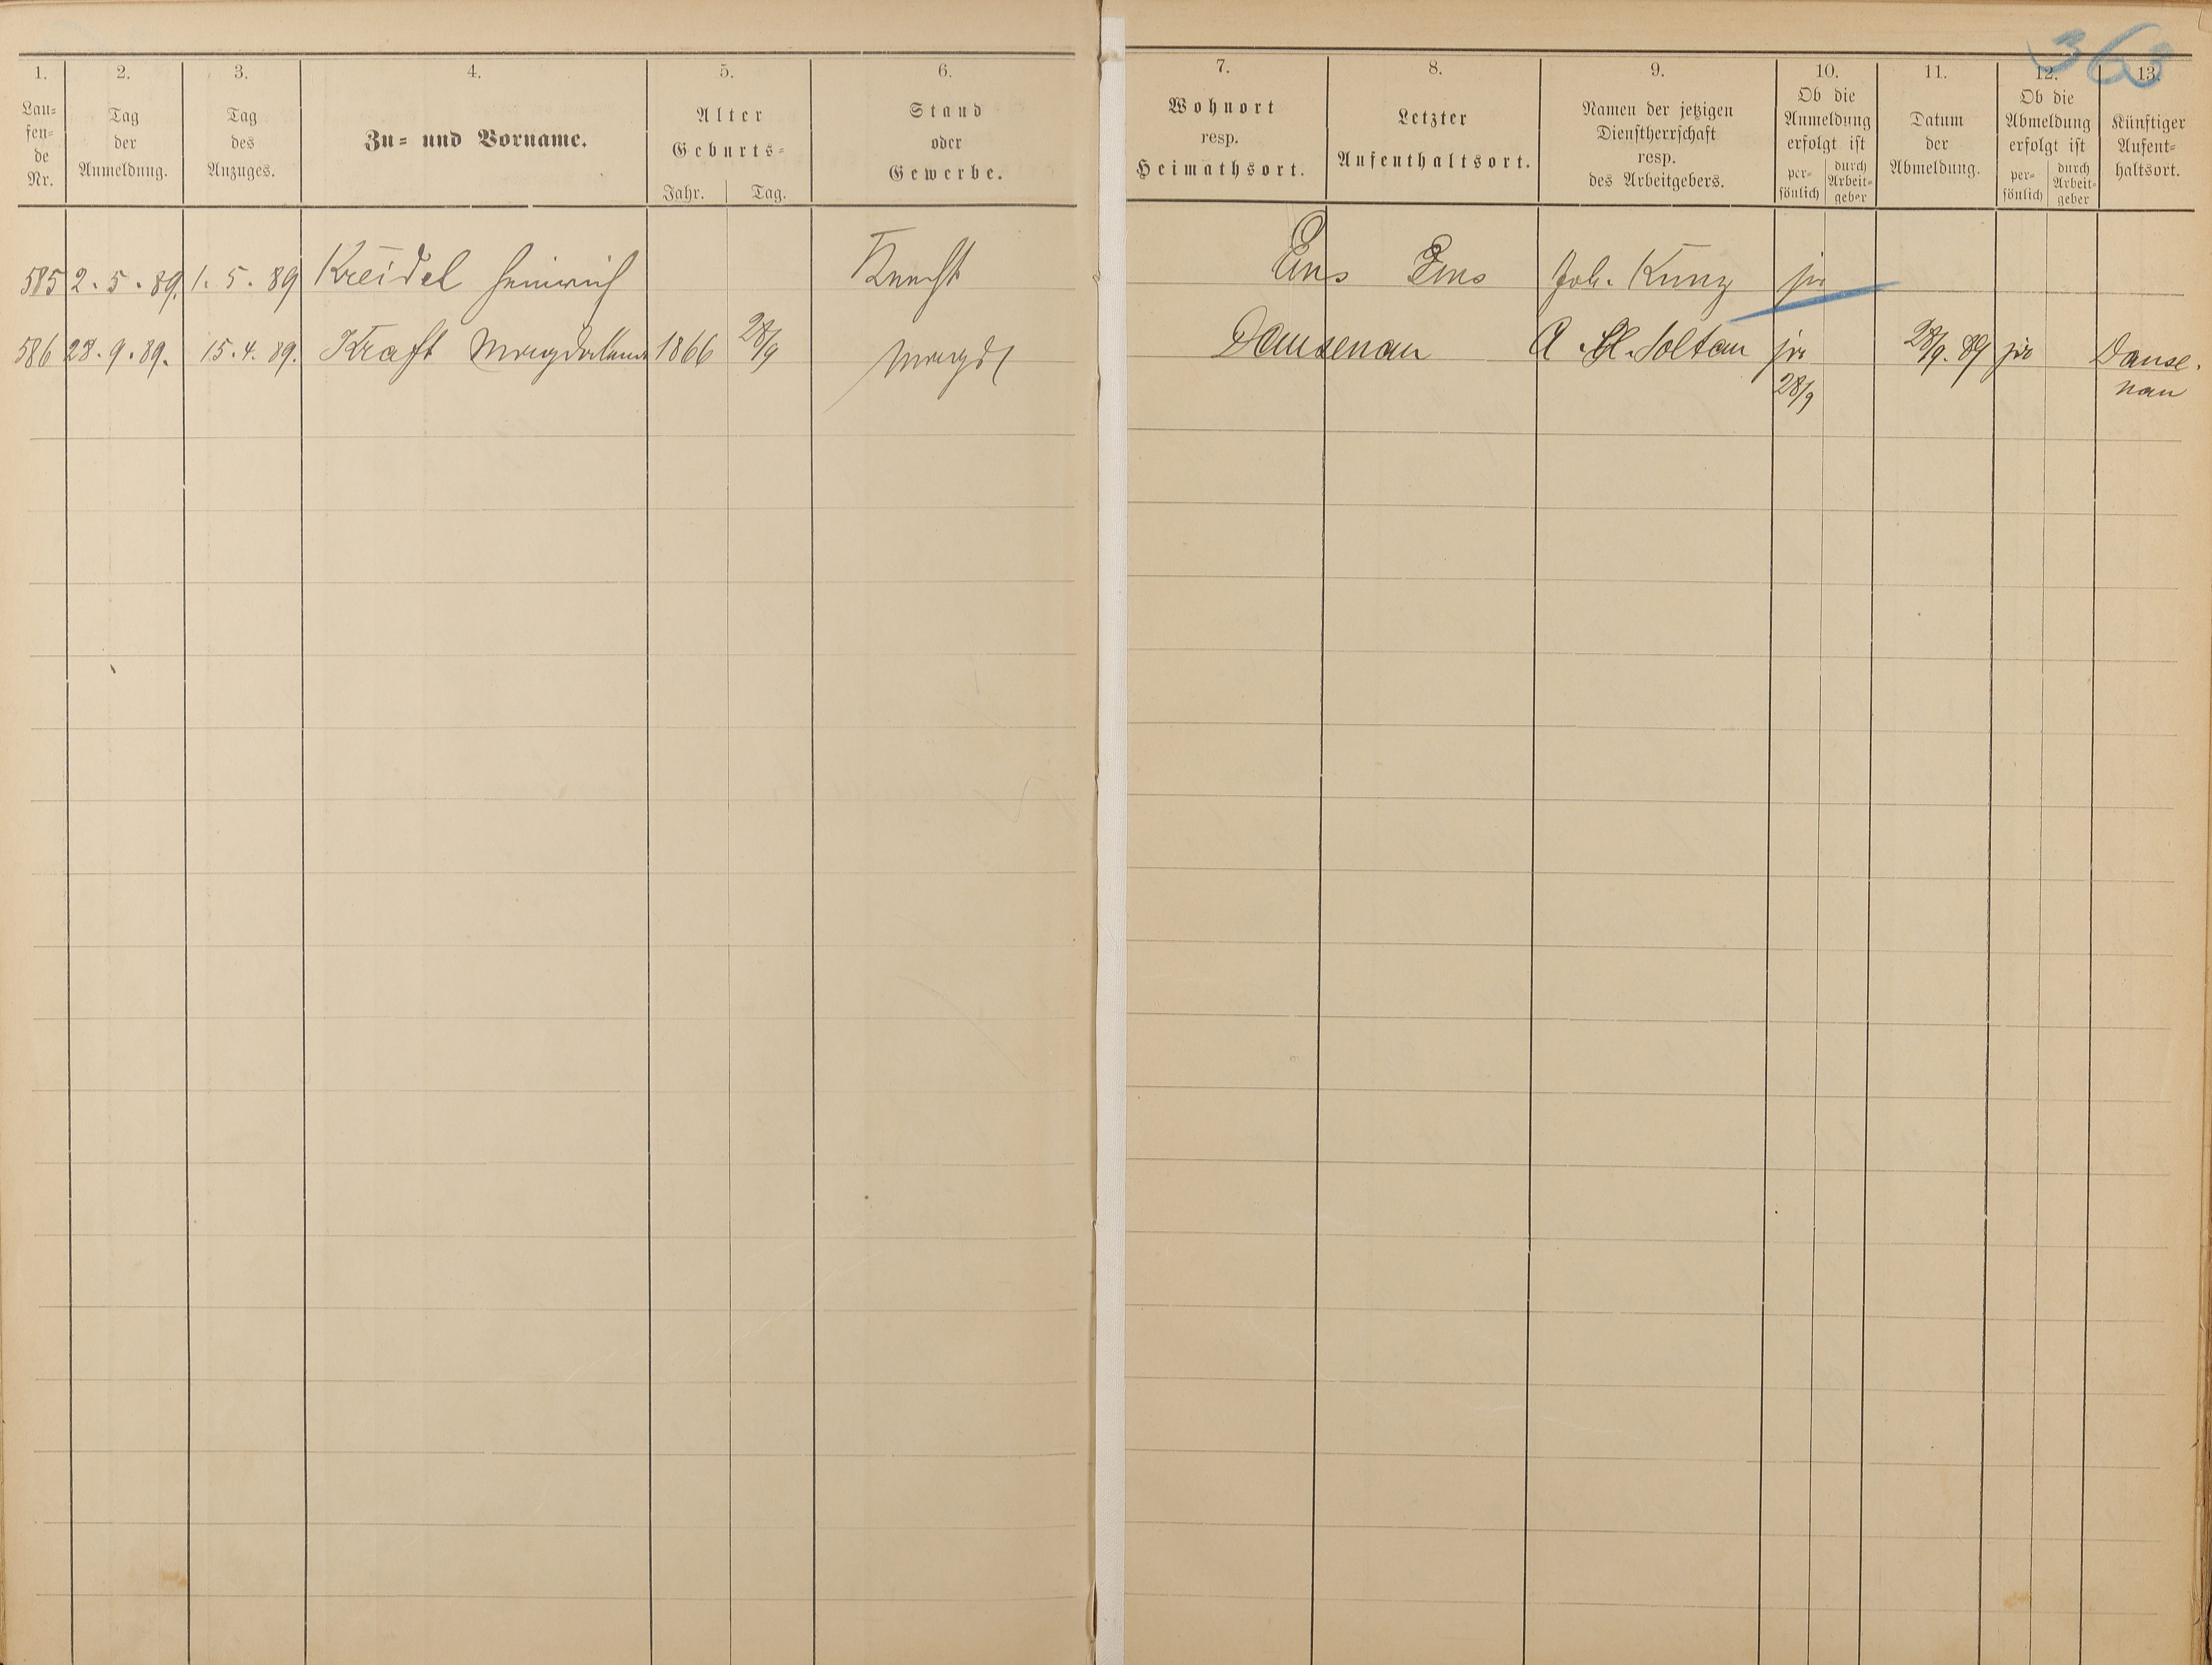 363
1. 2. 3. 4. 5. 6. 7. 8. 9. 10. 11. 12. 13.
Lau=
fen=
de
Nr.
Tag
der
Anmeldung.
Tag
des
Anzuges.
Zu= und Vorname.
Alter
Geburts=
Jahr. Tag.
Stand
oder
Gewerbe.
Wohnort
resp.
Heimathsort.
Letzter
Aufenthaltsort.
Namen der jetzigen
Dienstherrschaft
resp.
des Arbeitgebers.
Ob die
Anmeldung
erfolgt ist
per=
sönlich
durch
Arbeit=
geber
Datum
der
Abmeldung.
Ob die
Abmeldung
erfolgt ist
per=
sönlich
durch
Arbeit=
geber
Künftiger
Aufent=
haltsort.
585 2. 5. 89. 1. 5. 89 Kreidel Heinrich Knecht Ems Ems Joh. Kunz ja
586 28. 9. 89. 15. 4. 89. Kraft Magdalena 1866 28/9 Magd Dausenau A. Soltau ja 28/9. 89 ja Dause.
28/9 nau